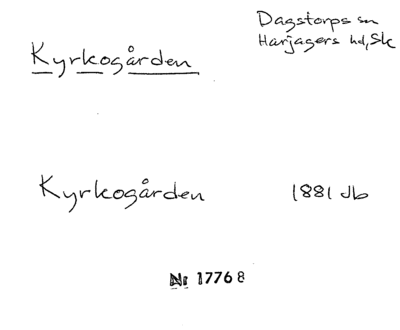 Dagstorps sn
Kyrkogården
Harjagers hd, Sk
Kyrkogården 1881 Jb
Nr 17768